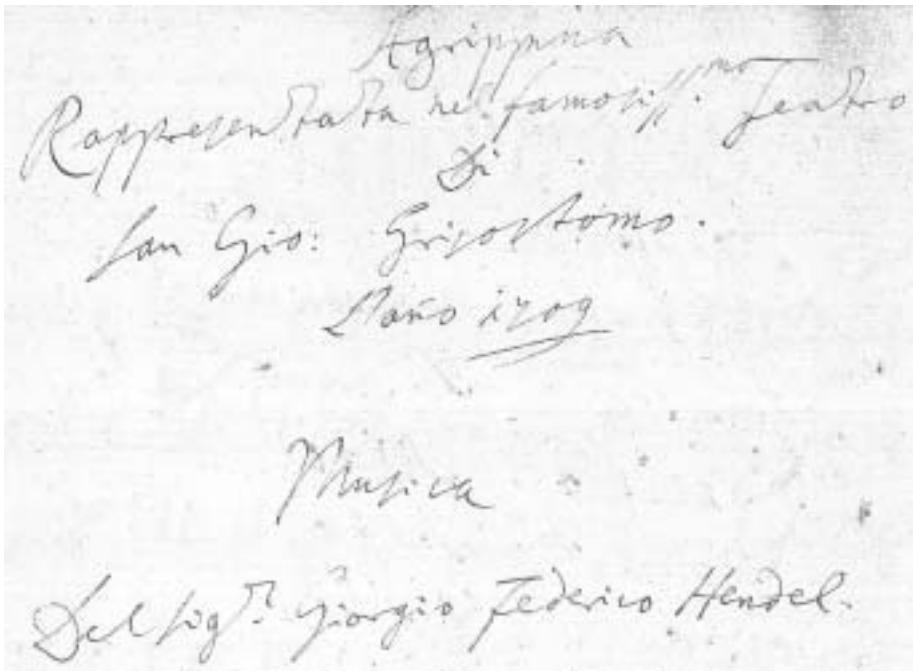 Agrippina
Rappresentata nel famosiss.mo Teatro
Di
San Gio: Grisostomo.
L'año 1709
Musica
Del Sigr. Giorgio Federico Hendel.